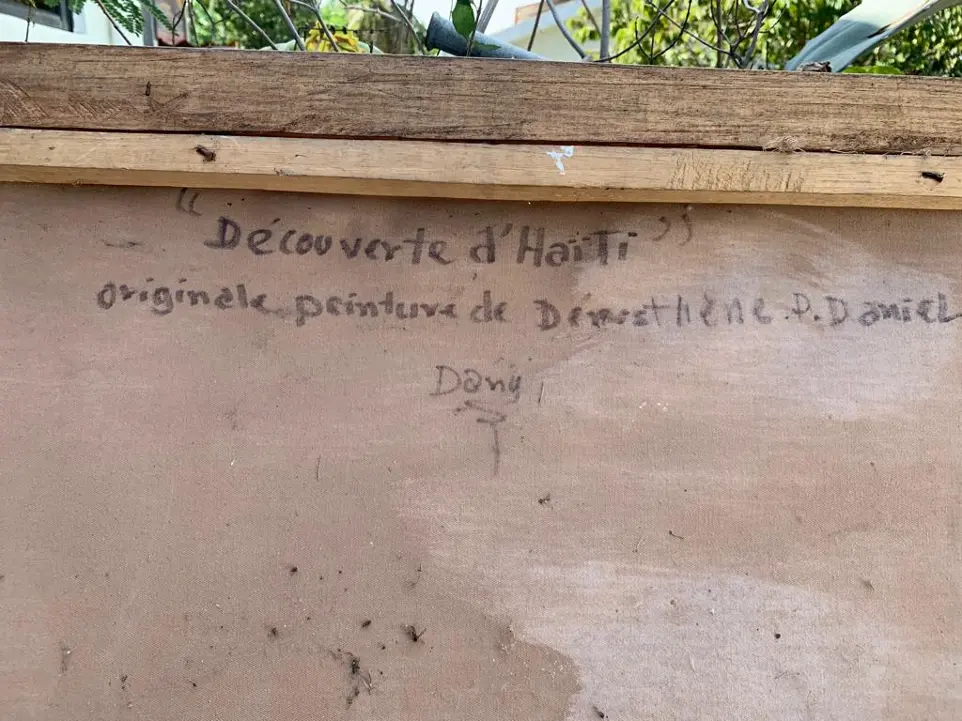 “Découverte d'HaïTi”
originale peinture de Démosthène P. Daniel
Dany